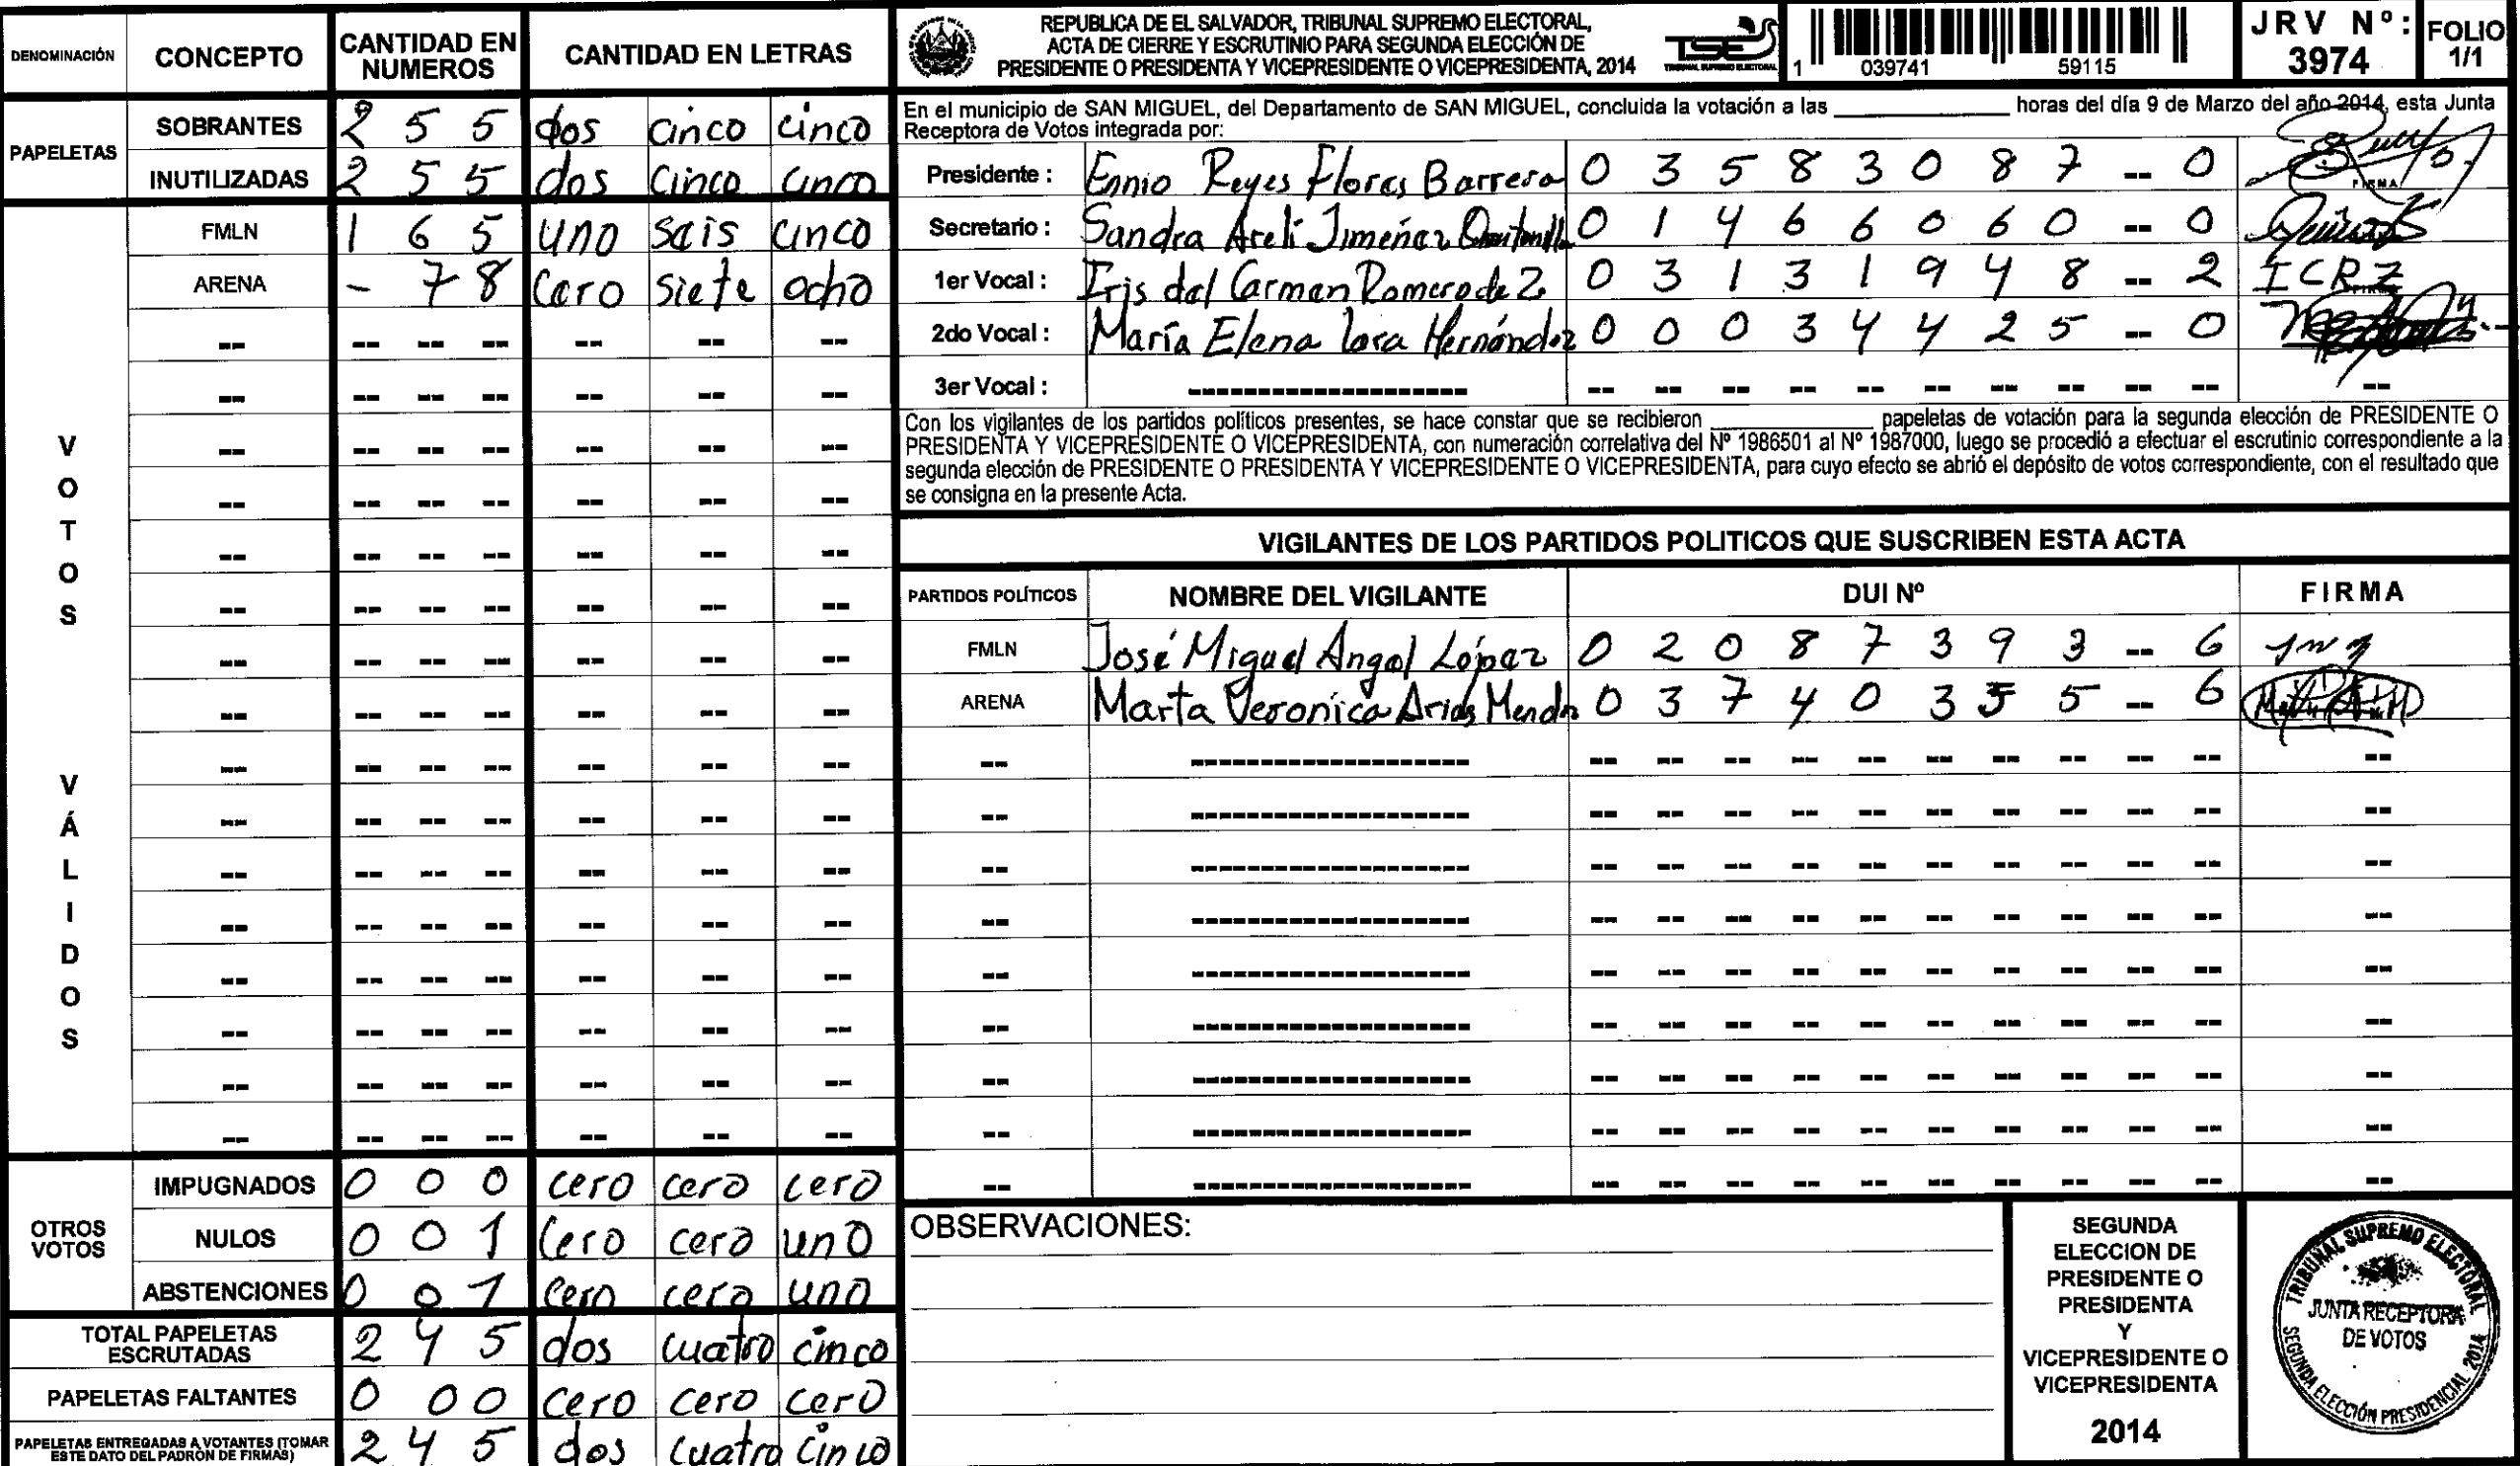 DENOMINACIÓN CONCEPTO CANTIDAD EN NUMEROS CANTIDAD EN LETRAS
PAPELETAS
SOBRANTES 2 5 5 dos cinco cinco
INUTILIZADAS 2 5 5 dos cinco cinco
VOTOS VÁLIDOS
FMLN 1 6 5 uno seis cinco
ARENA - 7 8 cero siete ocho
OTROS VOTOS
IMPUGNADOS 0 0 0 cero cero cero
NULOS 0 0 1 cero cero uno
ABSTENCIONES 0 0 1 cero cero uno
TOTAL PAPELETAS ESCRUTADAS 2 4 5 dos cuatro cinco
PAPELETAS FALTANTES 0 0 0 cero cero cero
PAPELETAS ENTREGADAS A VOTANTES (TOMAR ESTE DATO DEL PADRÓN DE FIRMAS) 2 4 5 dos cuatro cinco
REPUBLICA DE EL SALVADOR, TRIBUNAL SUPREMO ELECTORAL,
ACTA DE CIERRE Y ESCRUTINIO PARA SEGUNDA ELECCIÓN DE
PRESIDENTE O PRESIDENTA Y VICEPRESIDENTE O VICEPRESIDENTA, 2014
TSE
TRIBUNAL SUPREMO ELECTORAL
1 039741 59115
JRV Nº: 3974
FOLIO 1/1
En el municipio de SAN MIGUEL, del Departamento de SAN MIGUEL, concluida la votación a las ____ horas del día 9 de Marzo del año 2014, esta Junta
Receptora de Votos integrada por:
Presidente : Ennio Reyes Flores Barrera 0 3 5 8 3 0 8 7 -- 0
FIRMA
Secretario : Sandra Areli Jiménez 0 1 4 6 6 0 6 0 -- 0
1er Vocal : Iris del Carmen Romero de Z. 0 3 1 3 1 9 4 8 -- 2 ICRZ
2do Vocal : María Elena Lara Hernández 0 0 0 3 4 4 2 5 -- 0
3er Vocal :
Con los vigilantes de los partidos políticos presentes, se hace constar que se recibieron ____ papeletas de votación para la segunda elección de PRESIDENTE O
PRESIDENTA Y VICEPRESIDENTE O VICEPRESIDENTA, con numeración correlativa del Nº 1986501 al Nº 1987000, luego se procedió a efectuar el escrutinio correspondiente a la
segunda elección de PRESIDENTE O PRESIDENTA Y VICEPRESIDENTE O VICEPRESIDENTA, para cuyo efecto se abrió el depósito de votos correspondiente, con el resultado que
se consigna en la presente Acta.
VIGILANTES DE LOS PARTIDOS POLITICOS QUE SUSCRIBEN ESTA ACTA
PARTIDOS POLÍTICOS NOMBRE DEL VIGILANTE DUI Nº FIRMA
FMLN José Miguel Angel López 0 2 0 8 7 3 9 3 -- 6
ARENA Marta Veronica Arias 0 3 7 4 0 3 5 5 -- 6
OBSERVACIONES:
SEGUNDA
ELECCION DE
PRESIDENTE O
PRESIDENTA
Y
VICEPRESIDENTE O
VICEPRESIDENTA
2014
TRIBUNAL SUPREMO ELECTORAL
JUNTA RECEPTORA
DE VOTOS
SEGUNDA ELECCIÓN PRESIDENCIAL 2014